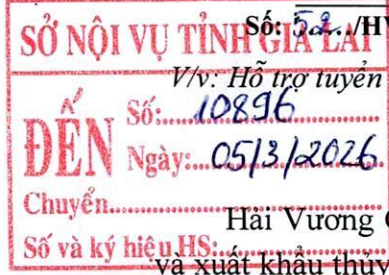 Số: 52../H
SỞ NỘI VỤ TỈNH GIA LAI
V/v: Hỗ trợ tuyển
ĐẾN
Số: 10896
Ngày: 05/3/2026
Chuyển
Hải Vương
Số và ký hiệu HS:
và xuất khẩu thủy